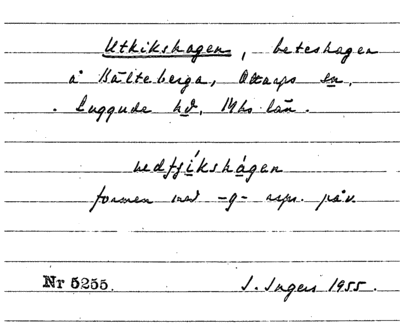 Utkikshagen, beteshagen
å Bälteberga, Ottarps sn,
Luggude hd, Mhs län.
uedfjíkshágen
formen med -g- repr. påv.
Nr 5255. I. Ingers 1955.